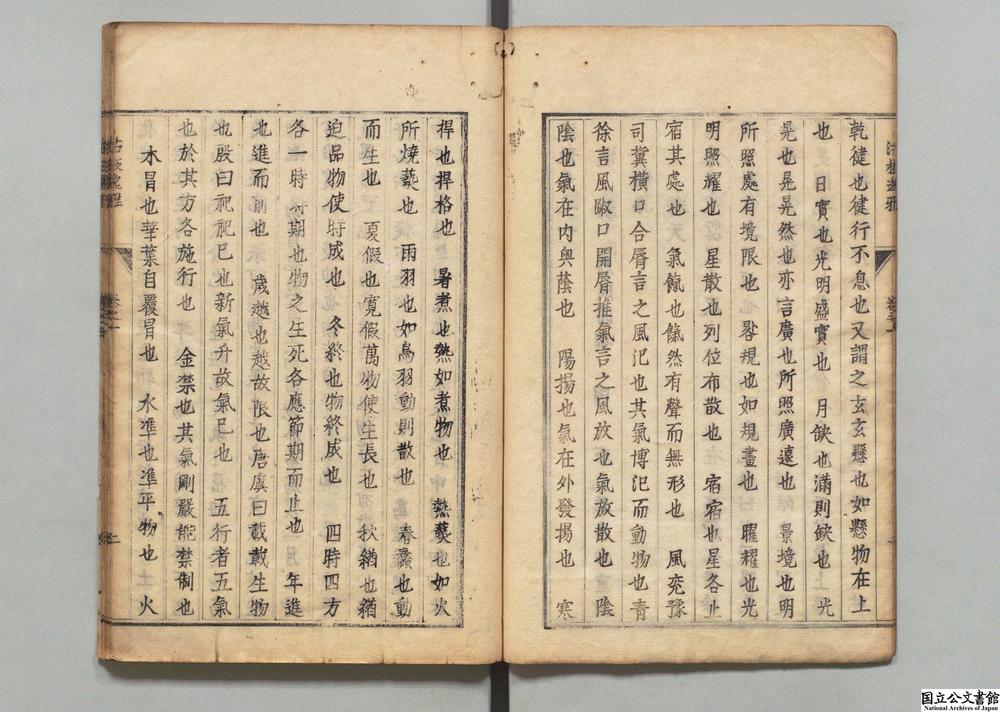 乾健也健行不息也又謂之玄玄懸也如懸物在上
也　日實也光明盛實也　月缺也滿則缺也　光
晃也晃晃然也亦言廣也所照廣遠也　景境也明
所照處有境限也　晷規也如規畫也　曜耀也光
明照耀也　星散也列位布散也　宿宿也星各止
宿其處也　氣餼也餼然有聲而無形也　風兖豫
司冀横口合脣言之風氾也其氣博氾而動物也青
徐言風踧口開脣推氣言之風放也氣放散也　陰
陰也氣在内奥蔭也　陽揚也氣在外發揚也　寒
捍也捍格也　暑煮也熱如煮物也　熱爇也如火
所燒爇也　雨羽也如鳥羽動則散也　春蠢也動
而生也　夏假也寛假萬物使生長也　秋緧也緧
迫品物使時成也　冬終也物終成也　四時四方
各一時時期也物之生死各應節期而止也　年進
也進而前也　歳越也越故限也唐虞曰載載生物
也殷曰祀祀巳也新氣升故氣巳也　五行者五氣
也於其方各施行也　金禁也其氣剛嚴能禁制也
木冒也華葉自覆冒也　水準也準平物也　火
国立公文書館
National Archives of Japan